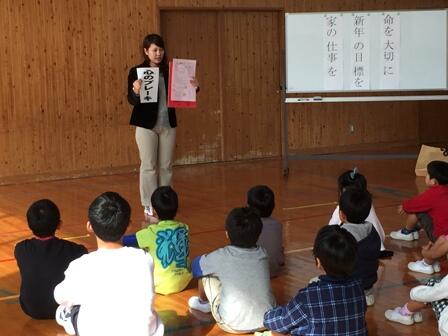 命を大切に
新年の目標を
家の仕事を
心のブレーキ